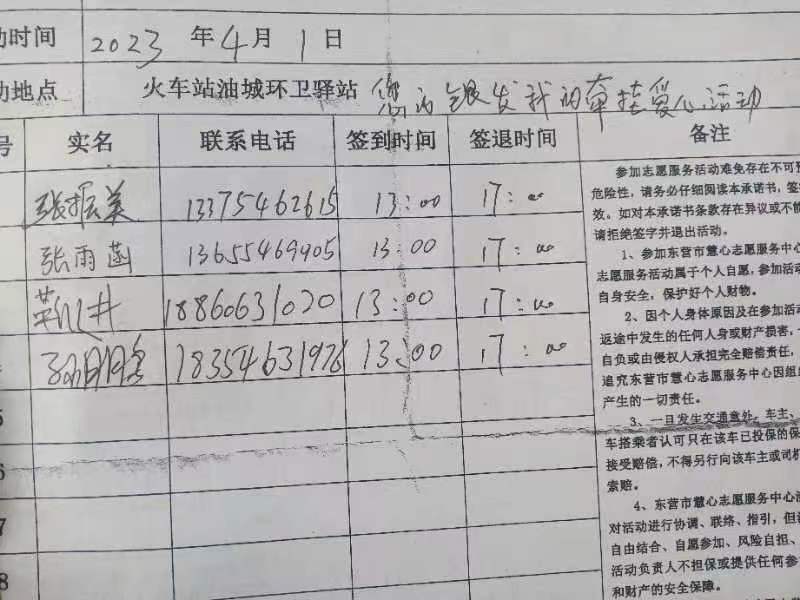 动时间 2023 年 4 月 1 日
动地点 火车站油城环卫驿站 您的银发我的牵挂爱心活动
号 实名 联系电话 签到时间 签退时间 备注
张振美 13375462615 13:00 17:00
张雨菡 13655469405 13:00 17:00
18860631020 13:00 17:00
4 18354631976 13:00 17:00
5
6
7
8
参加志愿服务活动难免存在不可预
危险性，请务必仔细阅读本承诺书，签
效。如对本承诺书条款存在异议或不能
请拒绝签字并退出活动。
1、参加东营市慧心志愿服务中心
志愿服务活动属于个人自愿，参加活动
自身安全，保护好个人财物。
2、因个人身体原因及在参加活动
返途中发生的任何人身或财产损害，
自负或由侵权人承担完全赔偿责任，
追究东营市慧心志愿服务中心因组织
产生的一切责任。
3、一旦发生交通意外，车主、
车搭乘者认可只在该车已投保的保
接受赔偿，不得另行向该车主或司机
索赔。
4、东营市慧心志愿服务中心活
对活动进行协调、联络、指引，但该
自由结合、自愿参加、风险自担、
活动负责人不担保或提供任何参
和财产的安全保障。